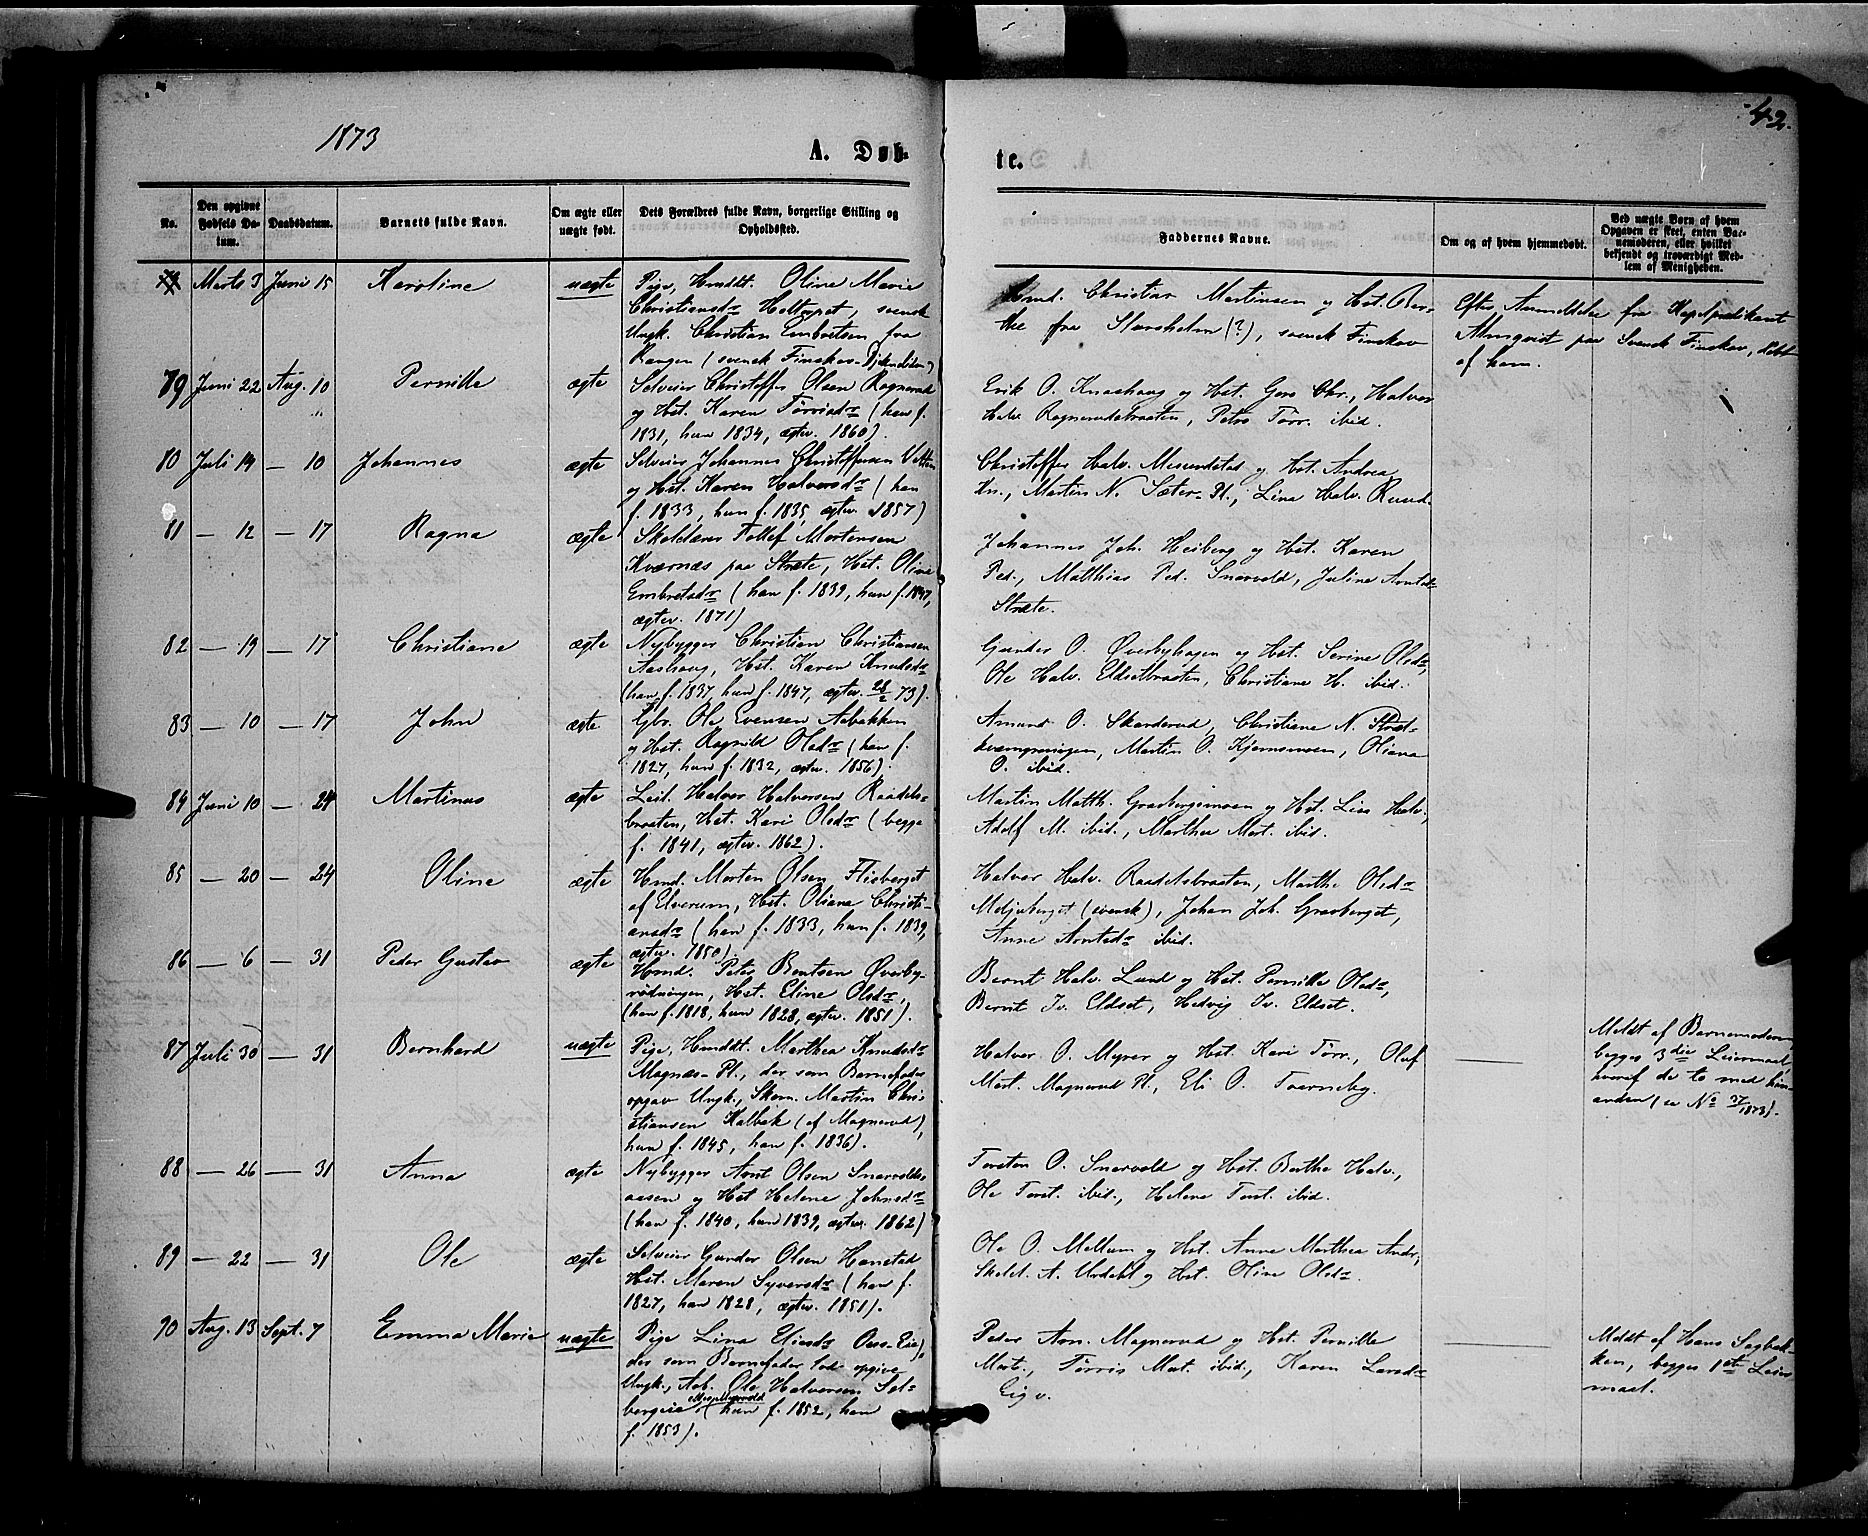 1873
A. Døb-
te.
42.
No.
Den opgivne Fødsels Da-tum.
Daabsdatum.
Barnets fulde Navn.
Om ægte eller uægte født.
Dets Forældres fulde Navn, borgerlige Stilling og Opholdssted.
Faddernes Navne.
Om og af hvem hjemmedøbt.
Ved uægte Born af hvem Opgaven er skeet, enten Bar-nemoderen, eller hvilket bekjendt og troværdigt Med-lem af Menigheden.
Marts 3 Juni 15 Karoline uægte Pige, Huusdt. Oline Marie
Christiansdr , svensk
Ungk. Christian Embretsen fra
Rangen (svensk Finskov
Christian Martinsen og Hst. Ber-
the fra Slavsholm (?), svensk Finskov
Efter Anmeldelse fra Kapelpredikant
Almqvist paa Svensk Finskov, døbt
af ham.
79 Juni 22 Aug. 10 Pernille ægte Selveier Christoffer Olsen Ragnerud
og Hst. Karen Tørrisdr (han f.
1831, hun 1834, ægtev. 1860).
Erik O. Knashaug og Hst. Goro Chr., Halvor
Halv. Ragnerudsbraaten, Petro Tørr. ibid.
80 Juli 14 — 10 Johannes ægte Selveier Johannes Christoffersen
og Hst. Karen Halvorsdr (han
f. 1833, hun f. 1835, ægtev. 1857)
Christoffer Halv. Mesundstad og Hst. Andrea
Kn., Martin N. Sæter-Pl., Lina Halv. Ruud.
81 — 12 — 17 Ragna ægte Skolelærer Tollef Mortensen
Kværnæs paa Stræte, Hst. Oline
Embretsdr (han f. 1839, hun f. 1847,
ægtev. 1871)
Johannes Joh. Heiberg og Hst. Karen
Ped., Matthias Ped. Snarvold, Juline Arntsdr
Stræte.
82 — 19 — 17 Christiane ægte Nybygger Christian Christiansen
Aashaug, Hst. Karen Knudsdr
(han f. 1837, hun f. 1847, ægtev. 28/2 73).
Gunder O. Øverbyhagen og Hst. Serine Olsdr,
Ole Halv. Eldsetbraaten, Christiane H. ibid.
83 — 10 — 17 John ægte Gbr. Ole Evensen Aabakken
og Hst. Ragnild Olsdr (han f.
1827, hun f. 1832, ægtev. 1856).
Amund O. Skarderud, Christiane N. Stræt-
, Martin O. Kjernsmoen, Oliana
O. ibid.
84 Juni 10 — 24 Martinus ægte Leil. Halvor Halvorsen Raadels-
braaten, Hst. Kari Olsdr (begge
f. 1841, ægtev. 1862).
Martin Matth. Grasbergsmoen og Hst. Lisa Halv.,
Adolf M. ibid., Marthea Mort. ibid.
85 — 20 — 24 Oline ægte Hmd. Morten Olsen Flisberget
af Elverum, Hst. Oliana Christi-
ansdr (han f. 1833, hun f. 1839,
ægtev. 1850)
Halvor Halv. Raadelsbraaten, Marthe Olsdr
(svensk), Johan Joh. Grasberget,
Anne Arntsdr ibid.
86 — 6 — 31 Peder Gustav ægte Hmd. Peter Bentsen Øverby-
rødningen, Hst. Eline Olsdr,
(han f. 1818, hun 1828, ægtev. 1851).
Bernt Halv. Lund og Hst. Pernille Olsdr,
Bernt Iv. Eldset, Hedvig Iv. Eldset.
87 Juli 30 — 31 Bernhard uægte Pige, Huusdt. Marthea Knudsdr
Magnæs-Pl., der som Barnefader
opgav Ungk., Skom. Martin Chri-
stiansen Kalbæk (af Magnerud),
hun f. 1845, han f. 1836).
Halvor O. Myrer og Hst. Kari Tørr., Oluf
Mort. Magnerud Pl., Eli O. Tverneby.
Meldt af Barnemoderen,
begges 3die Leiermaal,
hvoraf de to med hin-
anden (se No 37/1873).
88 — 26 — 31 Anna ægte Nybygger Arnt Olsen Snarvolds-
aasen og Hst Helene Johnsdr
(han f. 1840, hun 1839, ægtev. 1862)
Torsten O. Snarvold og Hst. Berthe Halv.,
Ole Torst. ibid., Helene Torst. ibid.
89 — 22 — 31 Ole ægte Selveier Gunder Olsen Hanstad
Hst. Maren Syversdr (han f.
1827, hun 1828, ægtev. 1851).
Ole O. Mellum og Hst. Anne Marthea Andr.,
Skolel. A. Urdahl og Hst. Oline Olsdr.
90 Aug. 13 Sept. 7 Emma Marie uægte Pige Lina Eliasdr ,
der som Barnefader lod opgive
Ungk., Arb. Ole Halvorsen Sol-
bergeie (hun f. 1852, han
f. 1853).
Peder Arn. Magnerud og Hst. Pernille
Mort., Tørris Mort. ibid., Karen Larsdr
Eig v.
Meldt af Hans Sagbak-
ken, begges 1ste Leier-
maal.